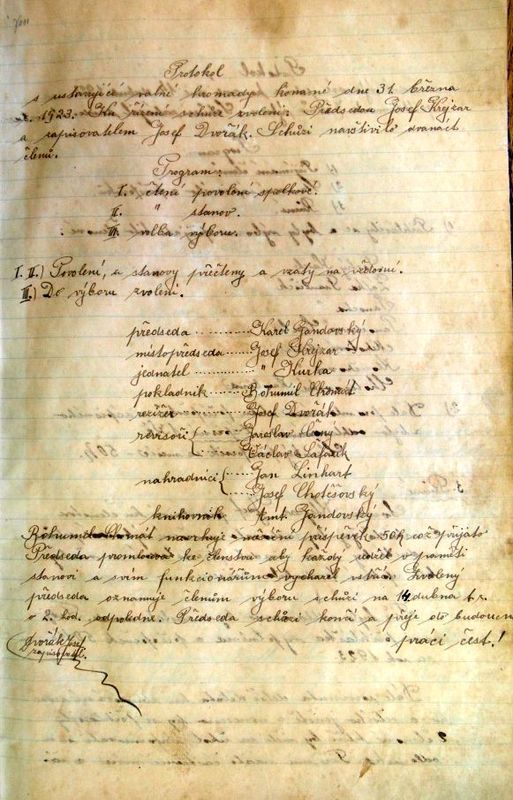 Protokol
s ustavující valné hromady konané dne 31. března
1923. Ku řízení schůze zvoleni: Předsedou Josef Krejzar
a zapisovatelem Josef Dvořák. Schůzi navštívilo dvanáct
členů.
Program:
I. čtení povolení spolkové.
II. " stanov.
III. volba výboru.
I. II.) Povolení, a stanovy přečteny a vzaty na vědomí.
III.) Do výboru zvoleni.
předseda ........ Karel Gandovský
místopředseda ........ Josef Krejzar
jednatel ........ " Kurka
pokladník ........ Bohumil
režisér ........ Josef Dvořák
revisoři { Jaroslav
Václav Šafařík
nahradníci { Jan Linhart
Josef Chotěšovský
knihovník Ant. Gandovský!
Bohumil navrhuje měsíční příspěvek 50h což přijato
Předseda promlouvá ke členstvu aby každý měl v paměti
stanovi a svím funkcionářům vycházel vstříc. Zvolený
předseda oznamuje členům výboru schůzi na 14 dubna t. r.
o 2. hod. odpoledne. Předseda schůzi končí a přeje do budoucna
práci čest.!
Dvořák Josef
zapisovatel.